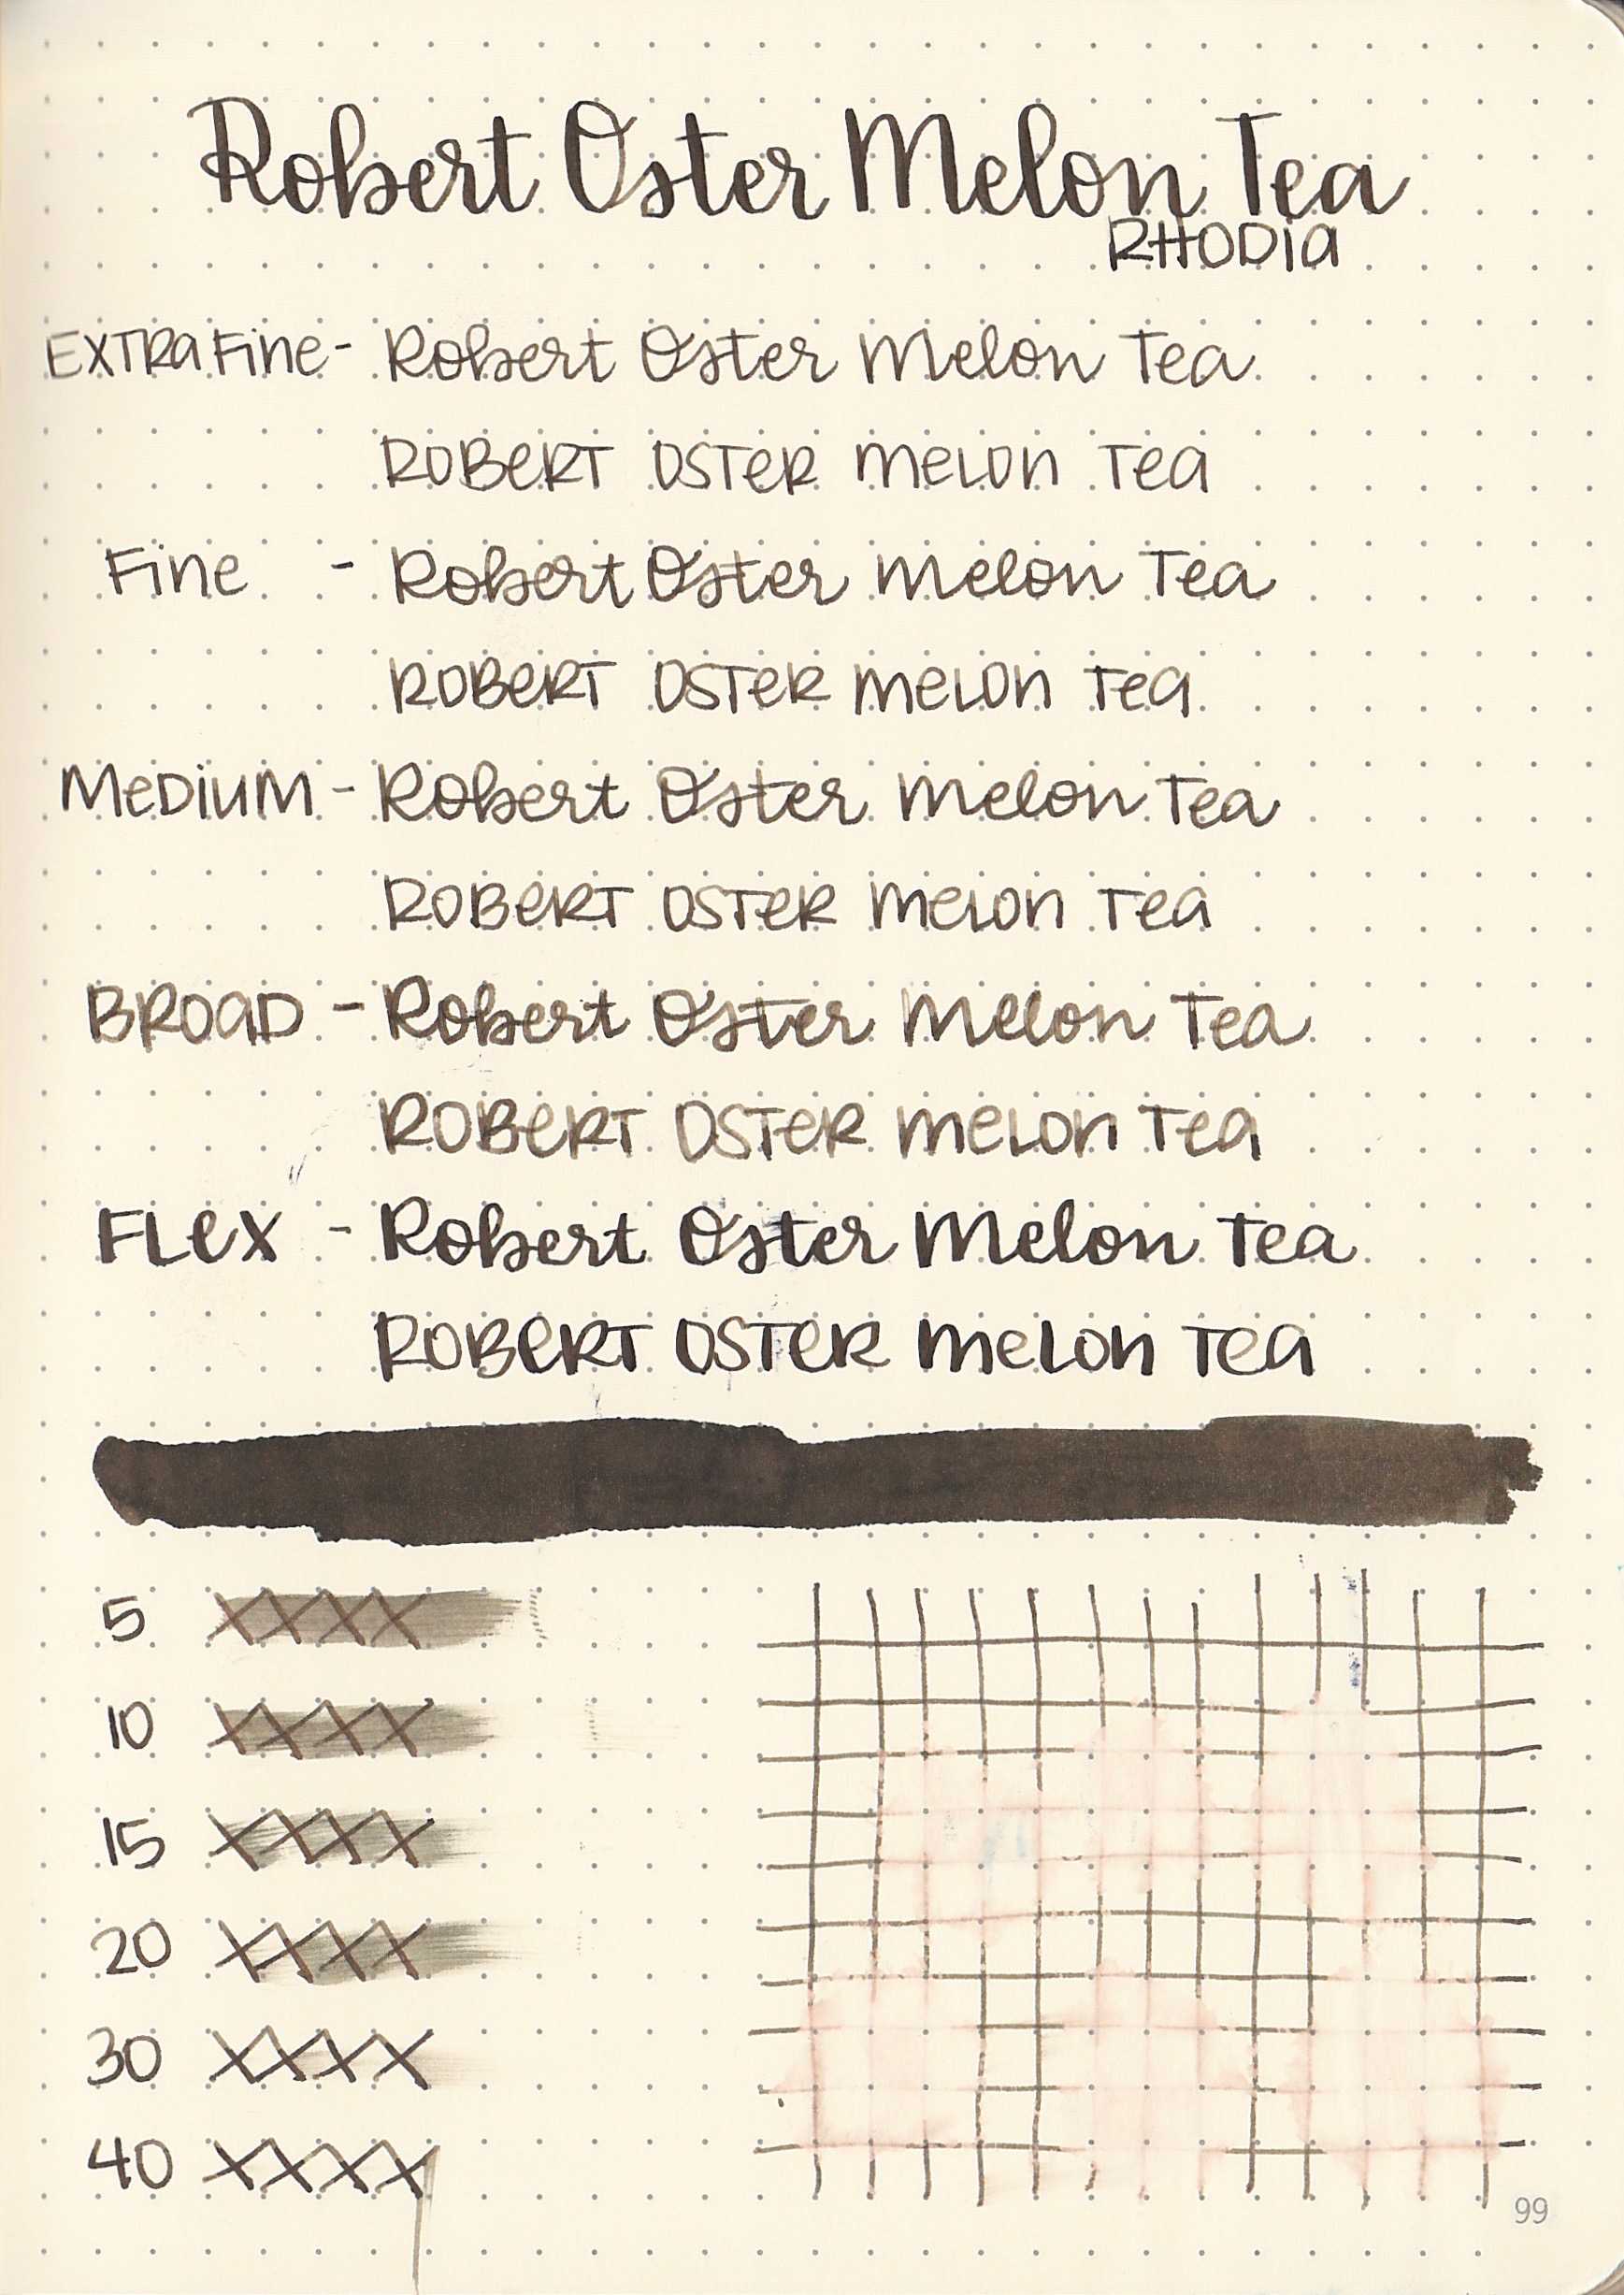 Robert Oster Melon Tea
RHODIA
EXTRA FINE - Robert Oster Melon Tea
ROBERT OSTER MELON TEA
FINE - Robert Oster Melon Tea
ROBERT OSTER MELON TEA
MEDIUM - Robert Oster Melon Tea
ROBERT OSTER MELON TEA
BROAD - Robert Oster Melon Tea
ROBERT OSTER MELON TEA
FLEX - Robert Oster Melon Tea
ROBERT OSTER MELON TEA
5 XXXX
10 XXXX
15 XXXX
20 XXXX
30 XXXX
40 XXXX
99